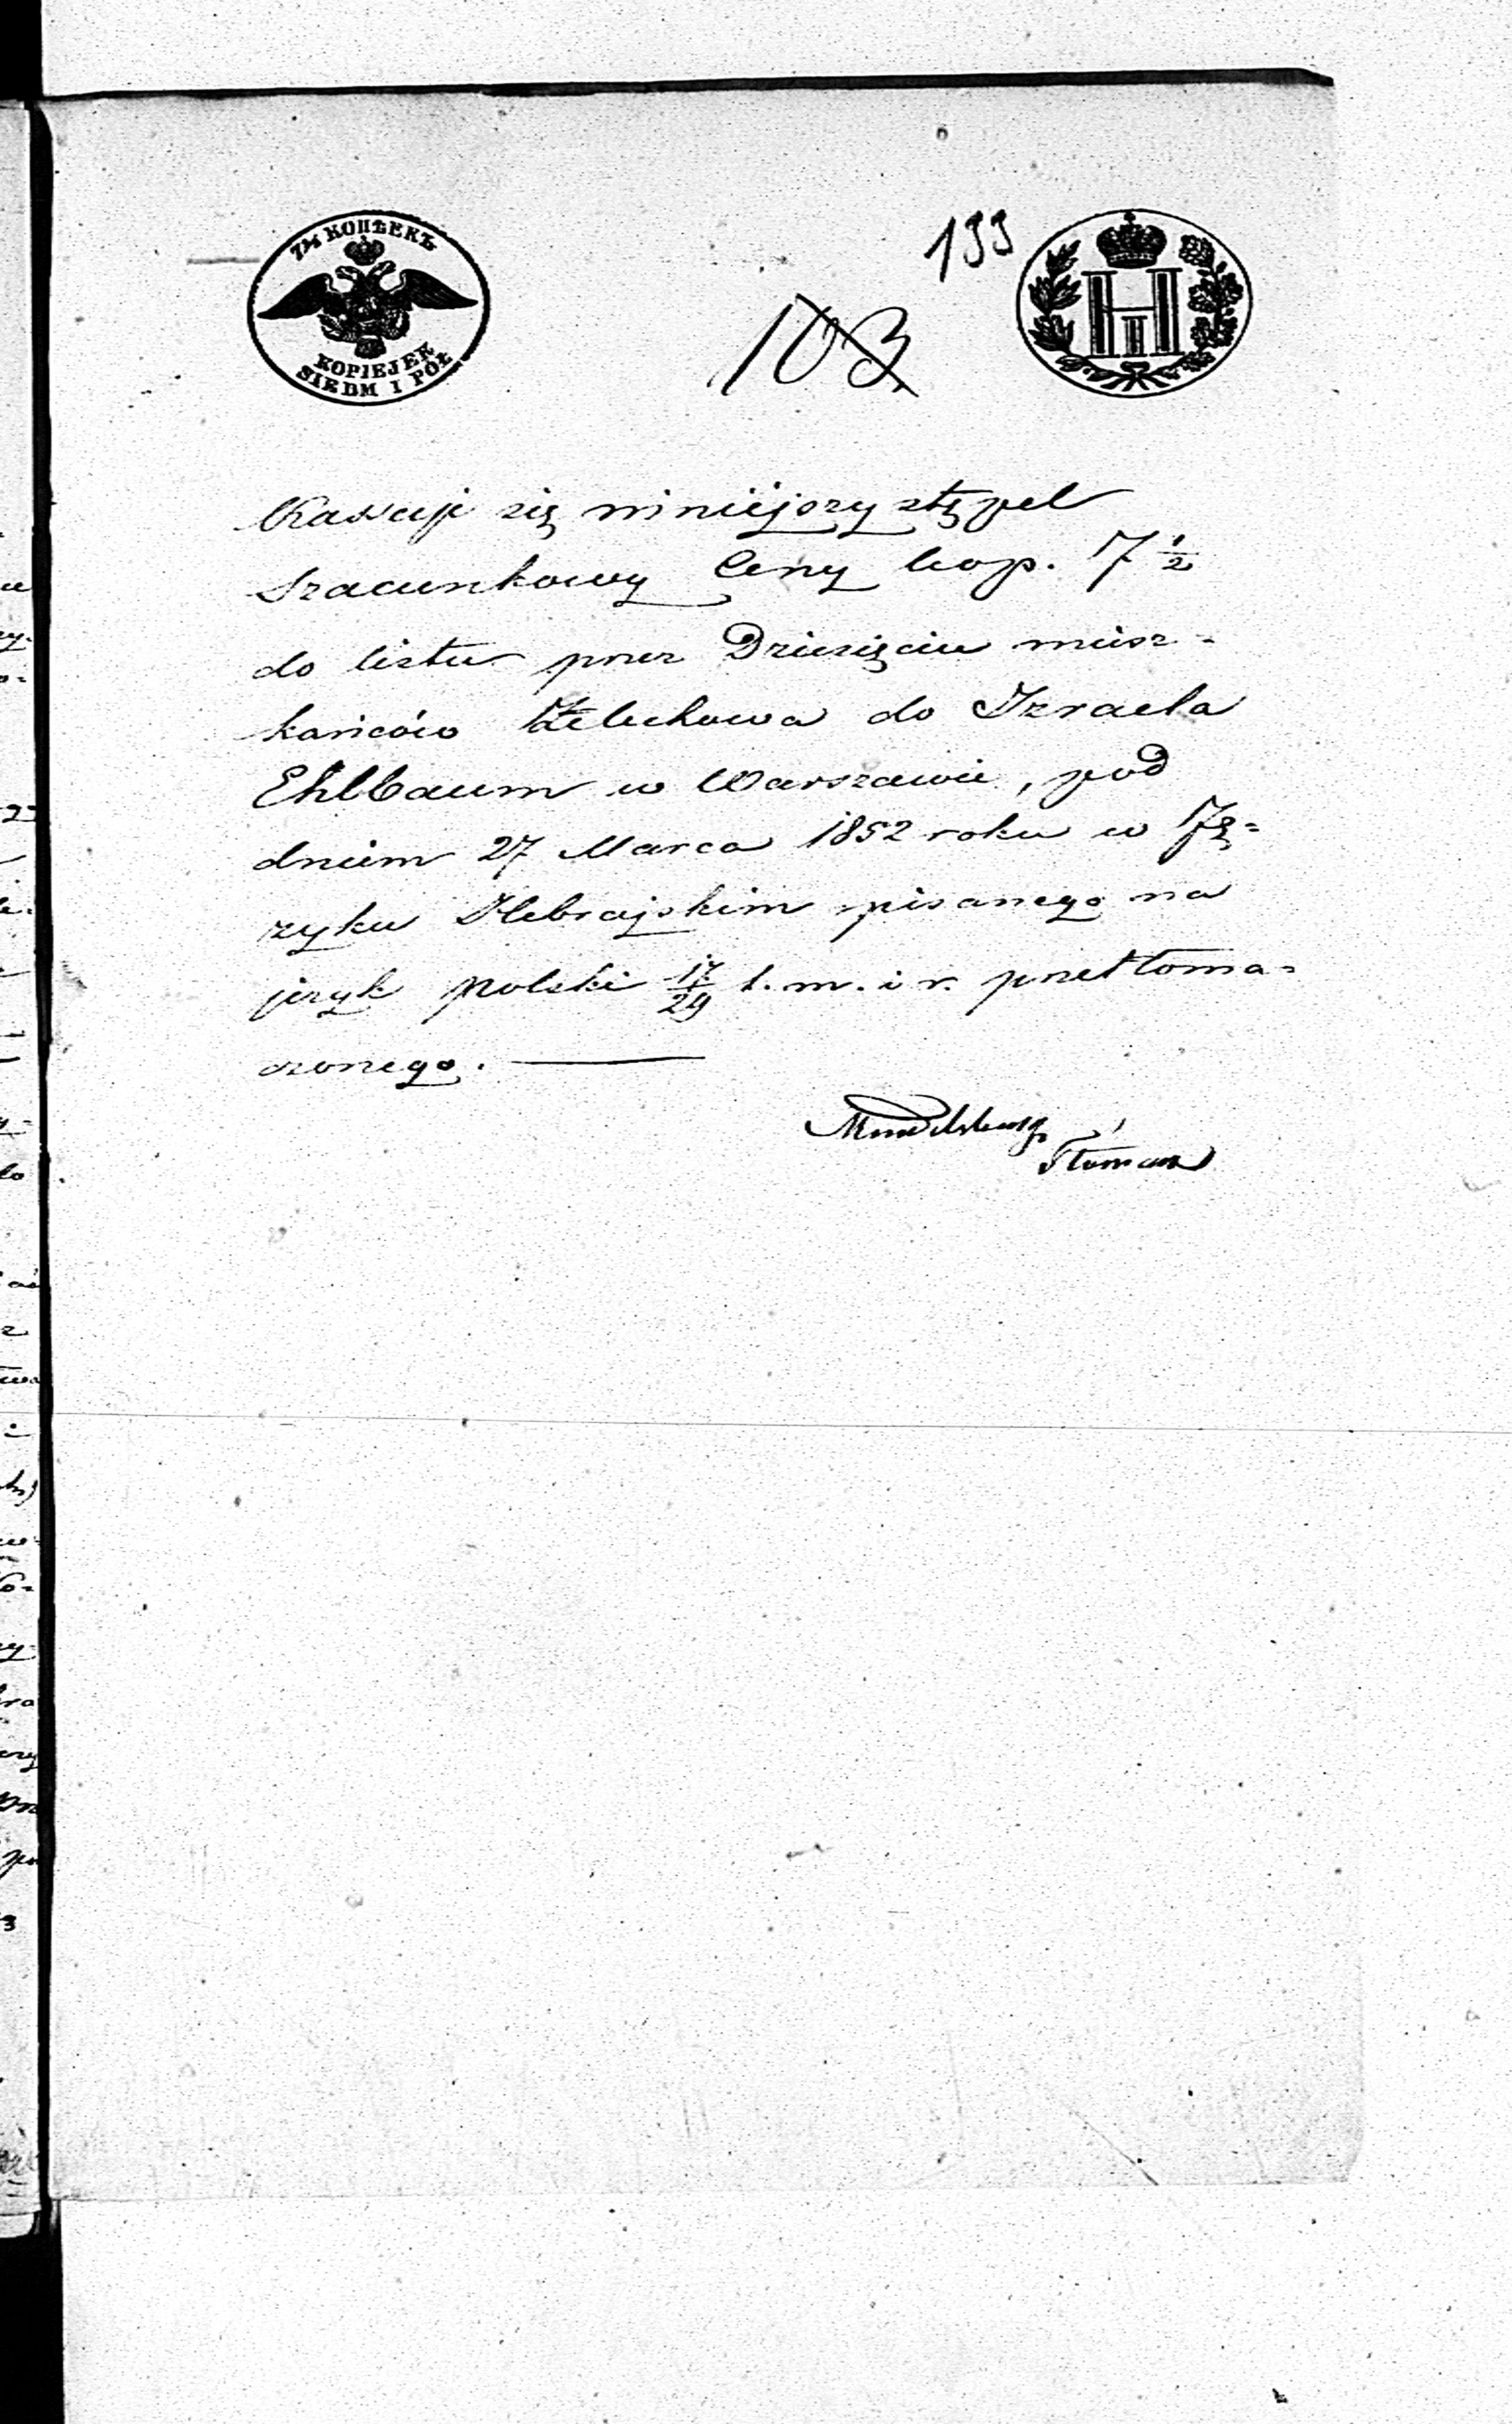 7½ КОПѢЕКЪ
KOPIEJEK
SIEDM I PÓŁ
133
103
H
III
Kassuje się niniejszy stępel
szacunkowy Ceny kop. 7 1/2
do listu przez Dziesięciu miesz=
kańców Żelechowa do Izraela
Ehlbaum w Warszawie, pod
dniem 27 Marca 1852 roku w Ję=
zyku Hebrajskim pisanego na
język polski 17/29 t. m. i r. przetłoma=
czonego.
Tłómacz